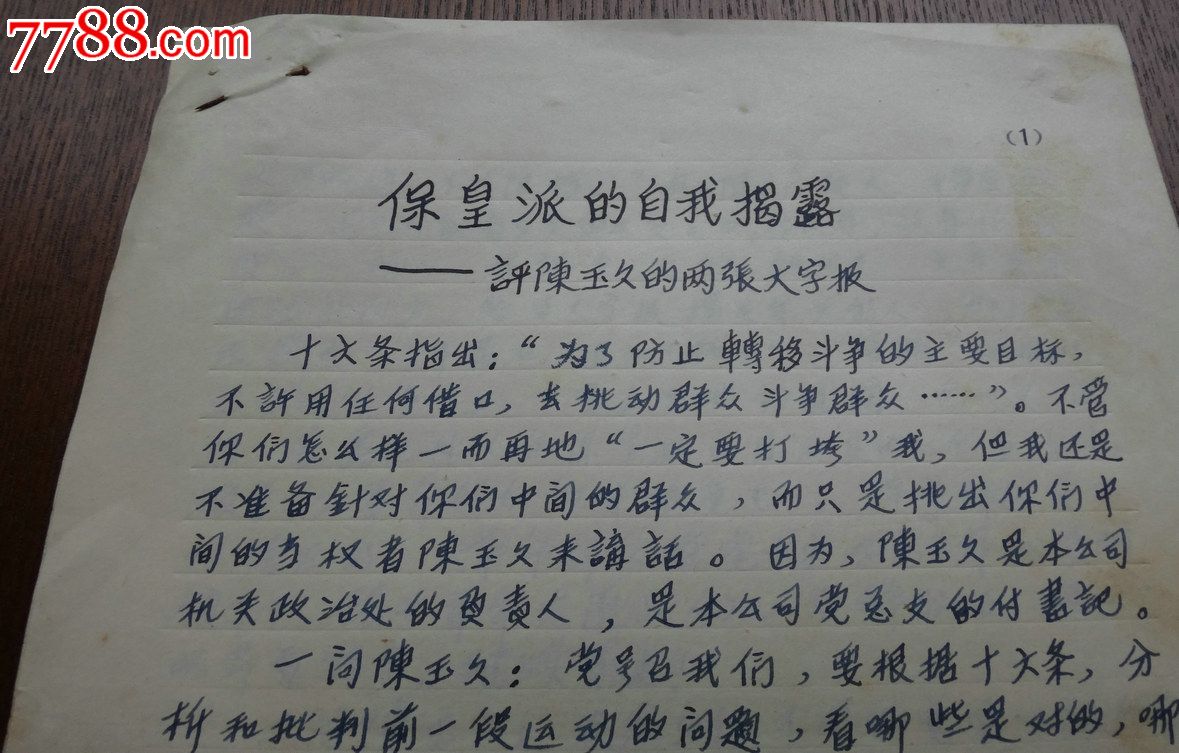 7788.com
(1)
保皇派的自我揭露
——評陳玉久的两張大字报
十六条指出：“为了防止轉移斗争的主要目标，
不許用任何借口，去挑动群众斗争群众……”。不管
你們怎么样一而再地“一定要打垮”我，但我还是
不准备針对你們中间的群众，而只是挑出你們中
间的当权者陳玉久来講話。因为，陳玉久是本公司
机关政治处的負責人，是本公司党总支的付書記。
一问陳玉久：党号召我们，要根据十六条，分
析和批判前一段运动的问题，看哪些是对的，哪